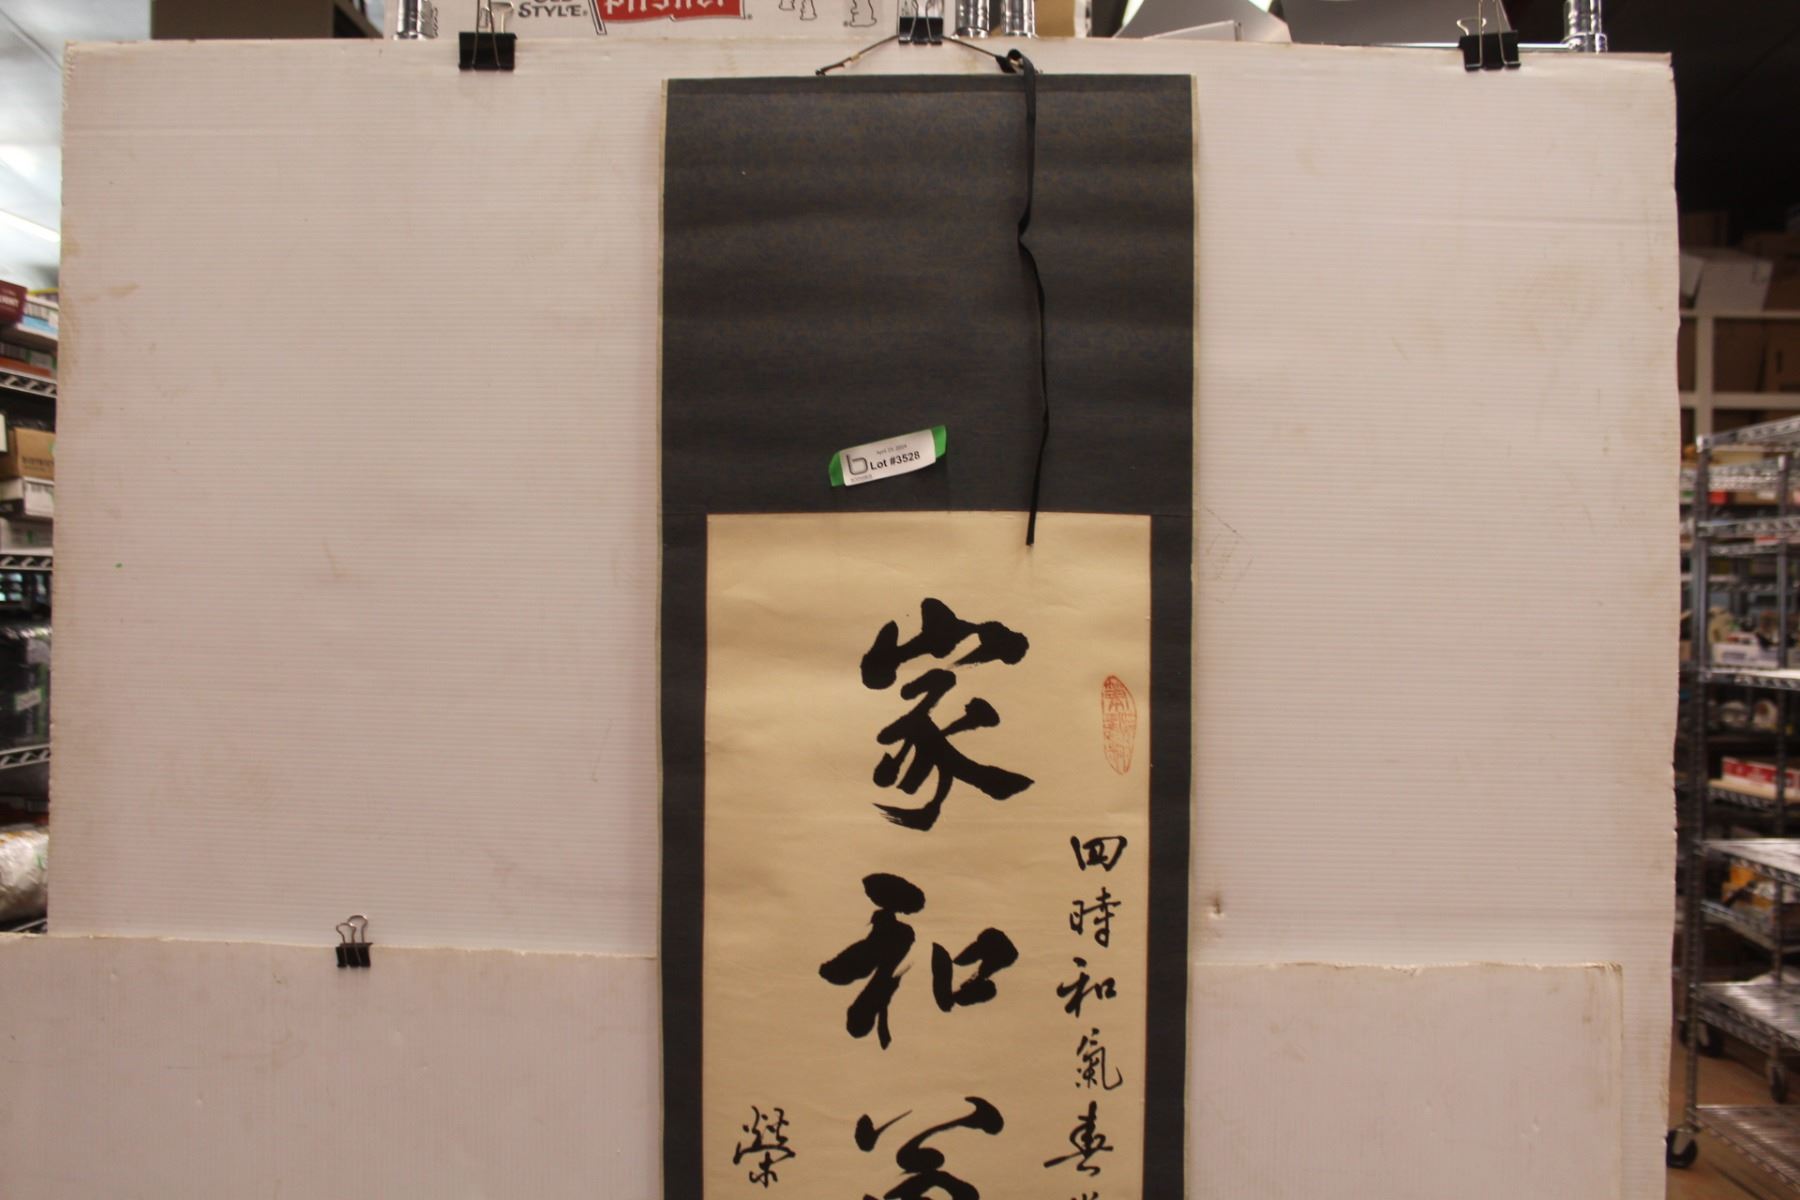 OLD STYLE®
Pilsner
April 25, 2024
Lot #3528
四時和氣春
家和萬
榮